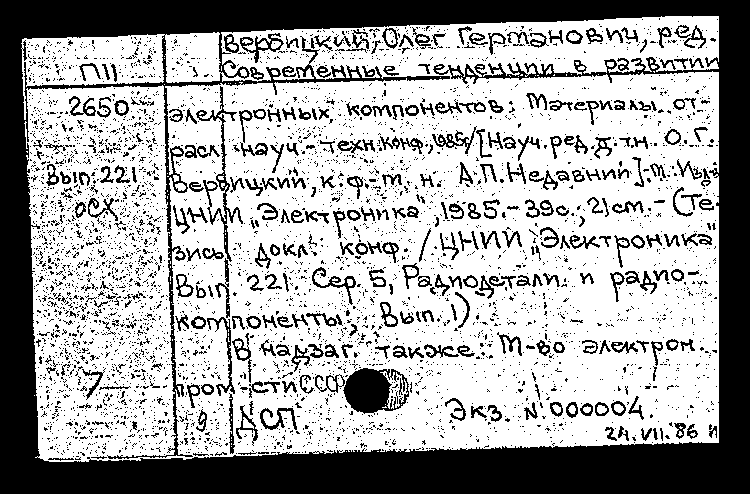 Вербицкий, Олег Германович, ред.
П11
Современные тенденции в развитии
2650
электронных компонентов: Материалы от-
расл. науч.-техн. конф., 1985г / [Науч. ред. д.т.н. О.Г.
Вып. 221
Вербицкий, к.ф.-м.н. А.П. Недавний].-М.: Изд-во
ОСХ
ЦНИИ „Электроника", 1985.-39с.; 21см.-(Те-
зисы докл. конф. / ЦНИИ „Электроника"
Вып. 221. Сер. 5, Радиодетали и радио-
компоненты; Вып. 1).
В надзаг. также: М-во электрон.
7
пром-сти СССР
9
ДСП.
Экз. N 000004.
24.VII.86 и